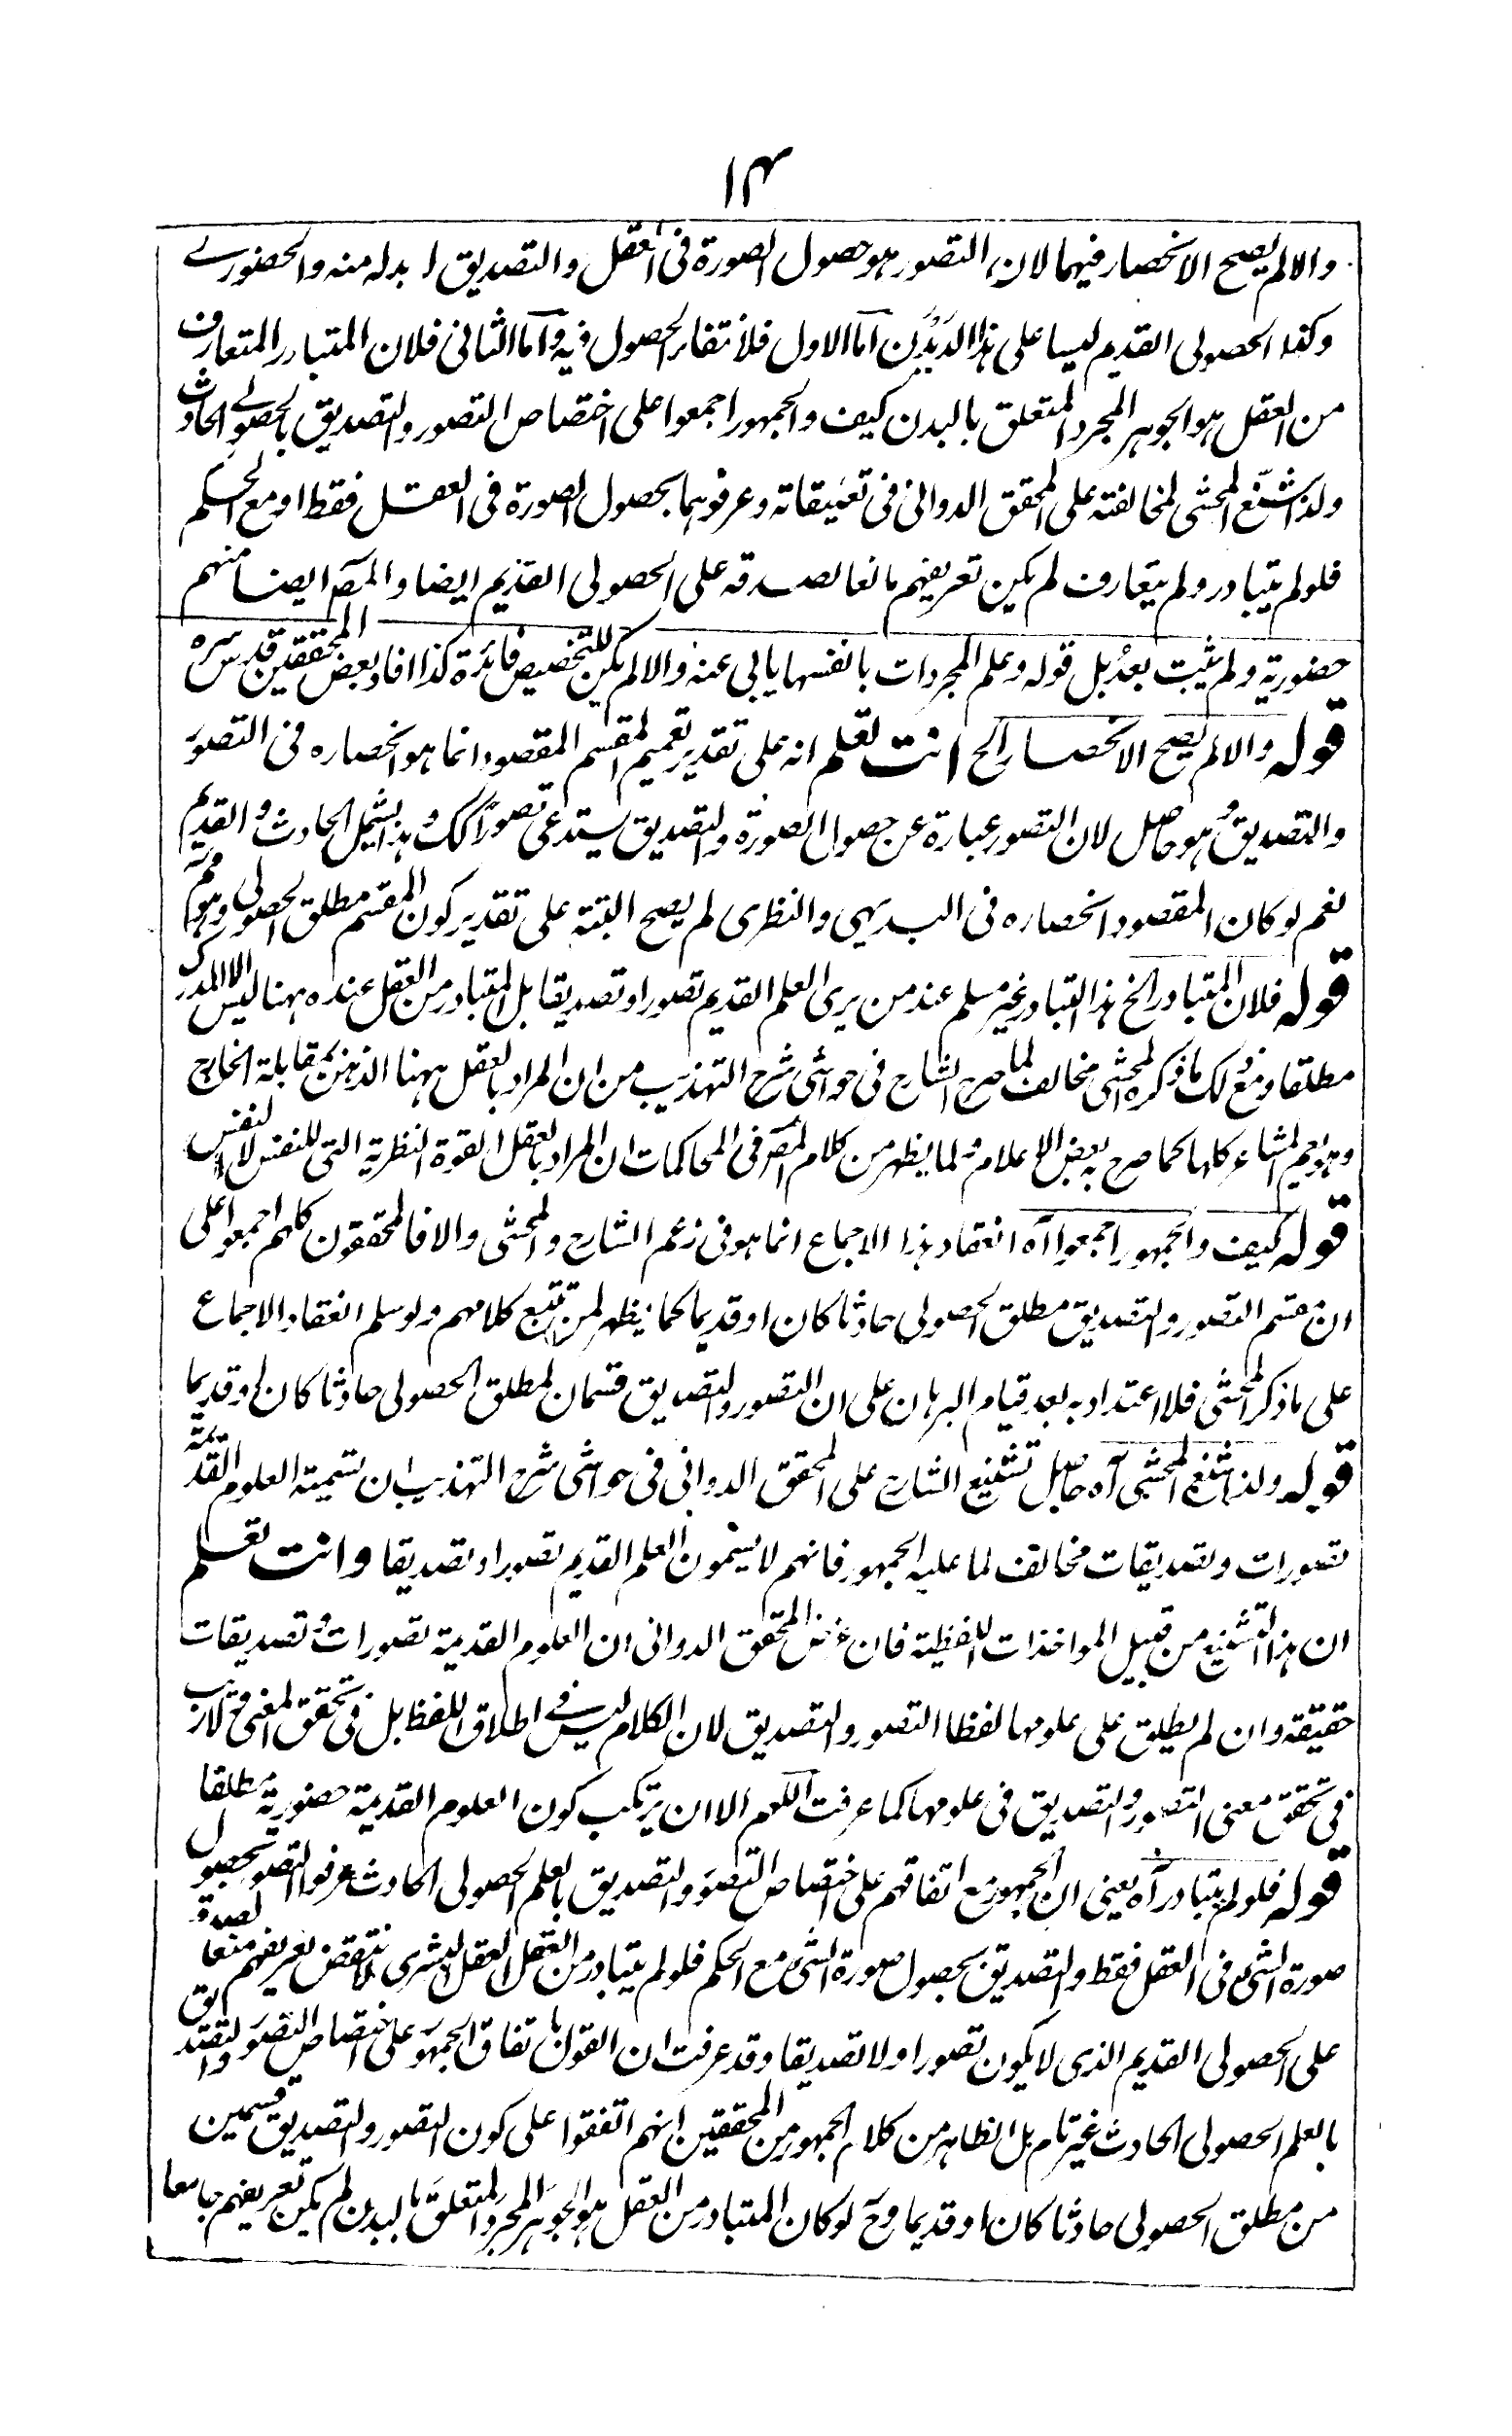 ۱۴
والا لم يصح الانحصار فيهما لان التصور هو حصول الصورة فى العقل والتصديق لا بد له منه والحضورے
وكذا الحصولى القديم ليسا على هذا الديدن اما الاول فلانتفاء الحصول فيه واما الثانى فلان المتبادر المتعارف
من العقل هو الجوهر المجرد المتعلق بالبدن كيف والجمهور اجمعوا على اختصاص التصور والتصديق بالحصولے الحادث
ولذا شنّع المحشى لمخالفته على المحقق الدوانى فى تعليقاته وعرفوهما بحصول الصورة فى العقل فقط او مع الحكم
فلو لم يتبادر ولم يتعارف لم يكن تعريفهم مانعا لصدقه على الحصولى القديم ايضا والمصـ ايضا منهم
حضورية ولم يثبت بعد بل قوله وعلم المجردات بانفسها يابى عنه والا لم يكن للتخصيص فائدة كذا افاد بعض المحققين قدس سره
قوله والا لم يصح الانحصار الخ انت تعلم انه على تقدير تعميم المقسم المقصود انما هو انحصاره فى التصور
والتصديق وهو حاصل لان التصور عبارة عن حصول الصورة والتصديق يستدعى تصورا كك وهذا يشمل الحادث والقديم
نعم لو كان المقصود انحصاره فى البديهى والنظرى لم يصح البتة على تقدير كون المقسم مطلق الحصولى وهو
قوله فلان المتبادر الخ هذا التبادر غير مسلم عند من يرى العلم القديم تصورا وتصديقا بل المتبادر من العقل عنده ههنا ليس الا المدرك
مطلقا ومع ذلك ما ذكره المحشى مخالف لما صرح الشارح فى حواشى شرح التهذيب من ان المراد بالعقل ههنا الذهن بمقابلة الخارج
وهو يعم المشاعر كلها كما صرح به بعض الاعلام ولما يظهر من كلام المصـ فى المحاكمات ان المراد بالعقل القوة النظرية التى للنفس لا النفس
قوله كيف والجمهور اجمعوا آه انعقاد هذا الاجماع انما هو فى زعم الشارح والمحشى والا فالمحققون كلهم اجمعوا على
ان مقسم التصور والتصديق مطلق الحصولى حادثا كان او قديما كما يظهر لمن تتبع كلامهم ولو سلم انعقاد الاجماع
على ما ذكر المحشى فلا اعتداد به بعد قيام البرهان على ان التصور والتصديق قسمان لمطلق الحصولى حادثا كان او قديما
قوله ولذا شنع المحشى آه حاصل تشنيع الشارح على المحقق الدوانى فى حواشى شرح التهذيب ان تسمية العلوم القديمة
تصورات وتصديقات مخالف لما عليه الجمهور فانهم لا يسمون العلم القديم تصورا وتصديقا وانت تعلم
ان هذا التشنيع من قبيل المواخذات اللفظية فان غرض المحقق الدوانى ان العلوم القديمة تصورات وتصديقات
حقيقة وان لم يطلق على علومها لفظا التصور والتصديق لان الكلام ليس فے اطلاق اللفظ بل فى تحقق المعنى ولا ريب
فى تحقق معنى التصور والتصديق فى علومها كما عرفت اللهم الا ان يرتكب كون العلوم القديمة حضورية مطلقا
قوله فلو لم يتبادر آه يعنى ان الجمهور مع اتفاقهم على اختصاص التصور والتصديق بالعلم الحصولى الحادث عرفوا التصور بحصول
صورة الشئ فى العقل فقط والتصديق بحصول صورة الشئ مع الحكم فلو لم يتبادر من العقل العقل البشرى لانتقض تعريفهم منعا لصدقه
على الحصولى القديم الذى لا يكون تصورا ولا تصديقا وقد عرفت ان القول باتفاق الجمهور على اختصاص التصور والتصديق
بالعلم الحصولى الحادث غير تام بل الظاهر من كلام الجمهور من المحققين انهم اتفقوا على كون التصور والتصديق قسمين
من مطلق الحصولى حادثا كان او قديما وح لو كان المتبادر من العقل هو الجوهر المجرد المتعلق بالبدن لم يكن تعريفهم جامعا